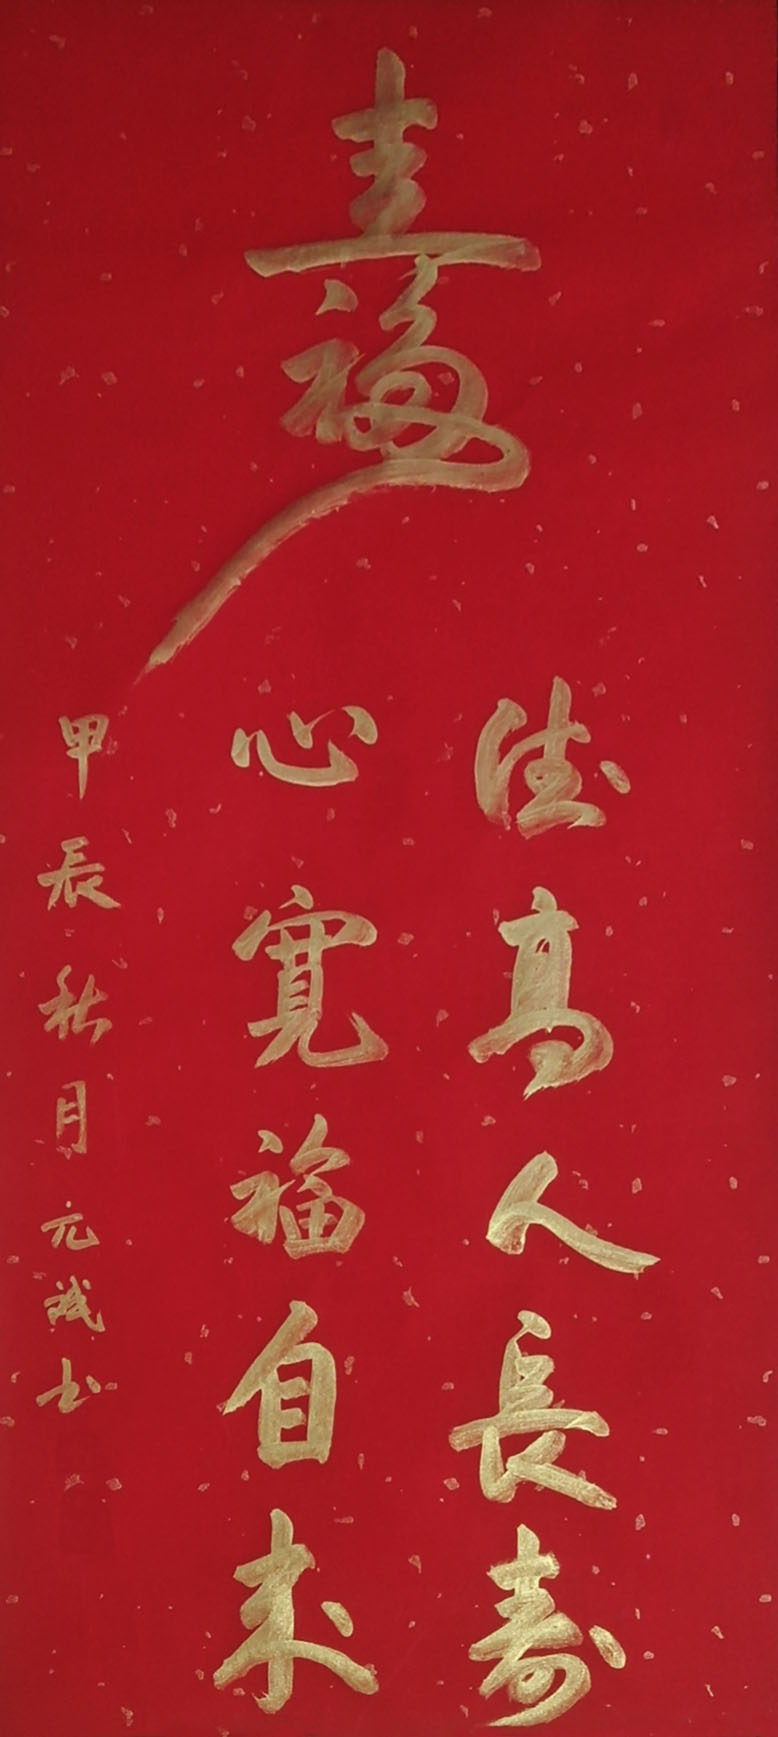 壽福
德高人長寿
心寬福自来
甲辰秋月元誠书